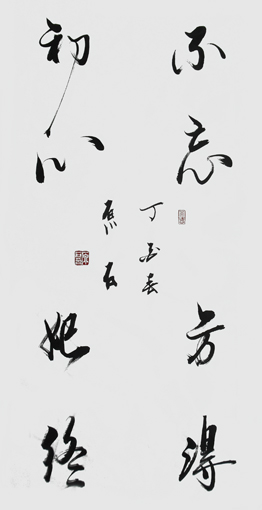 不忘
初心
方得
始終
丁酉春